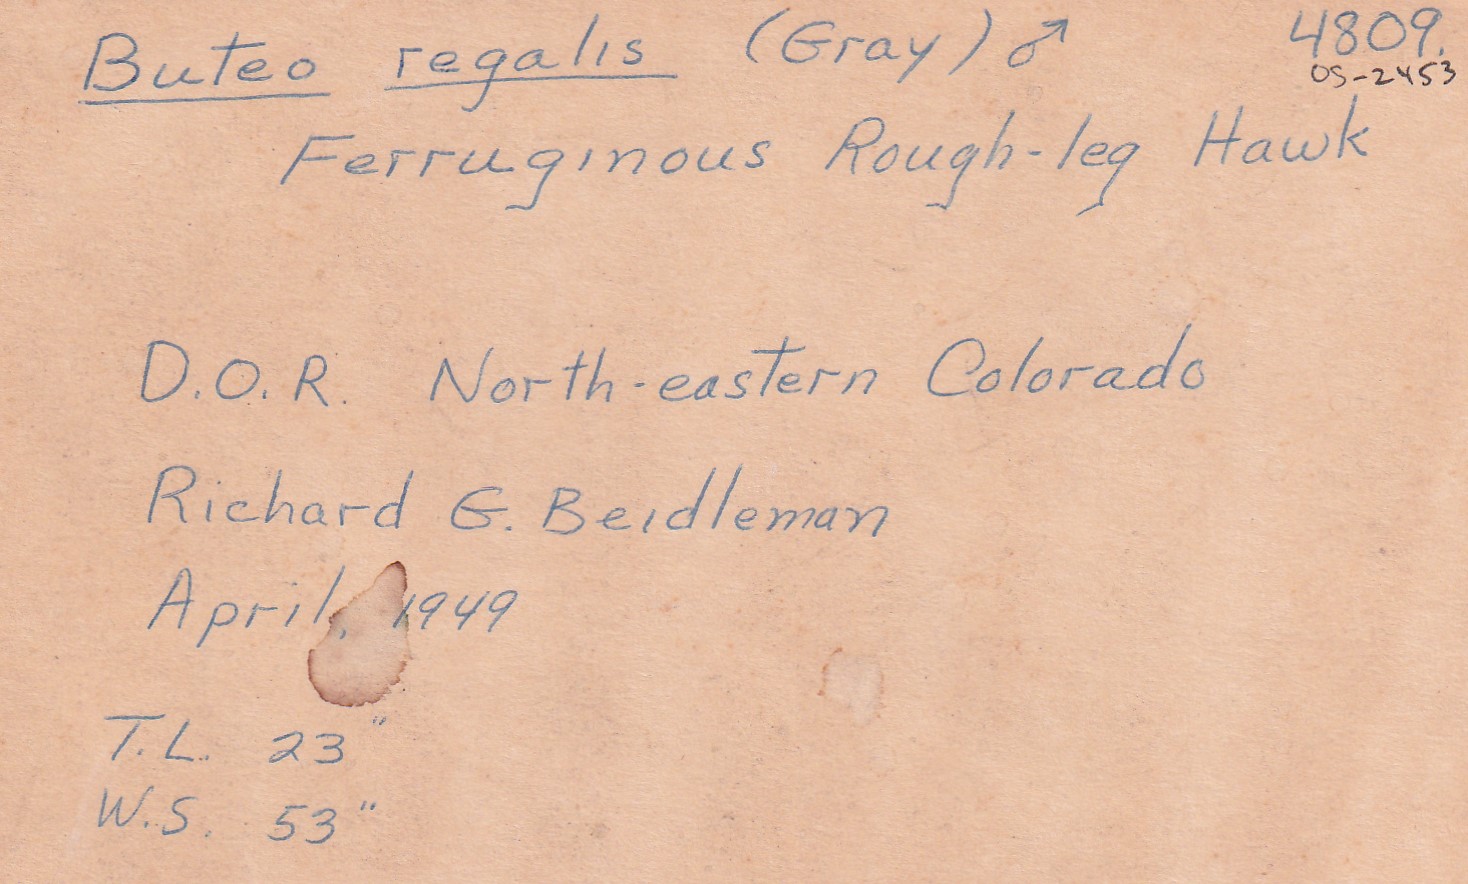 Buteo regalis (Gray) ♂ 4809.
OS-2453
Ferruginous Rough-leg Hawk
D.O.R. North-eastern Colorado
Richard G. Beidleman
April, 1949
T.L. 23"
W.S. 53"